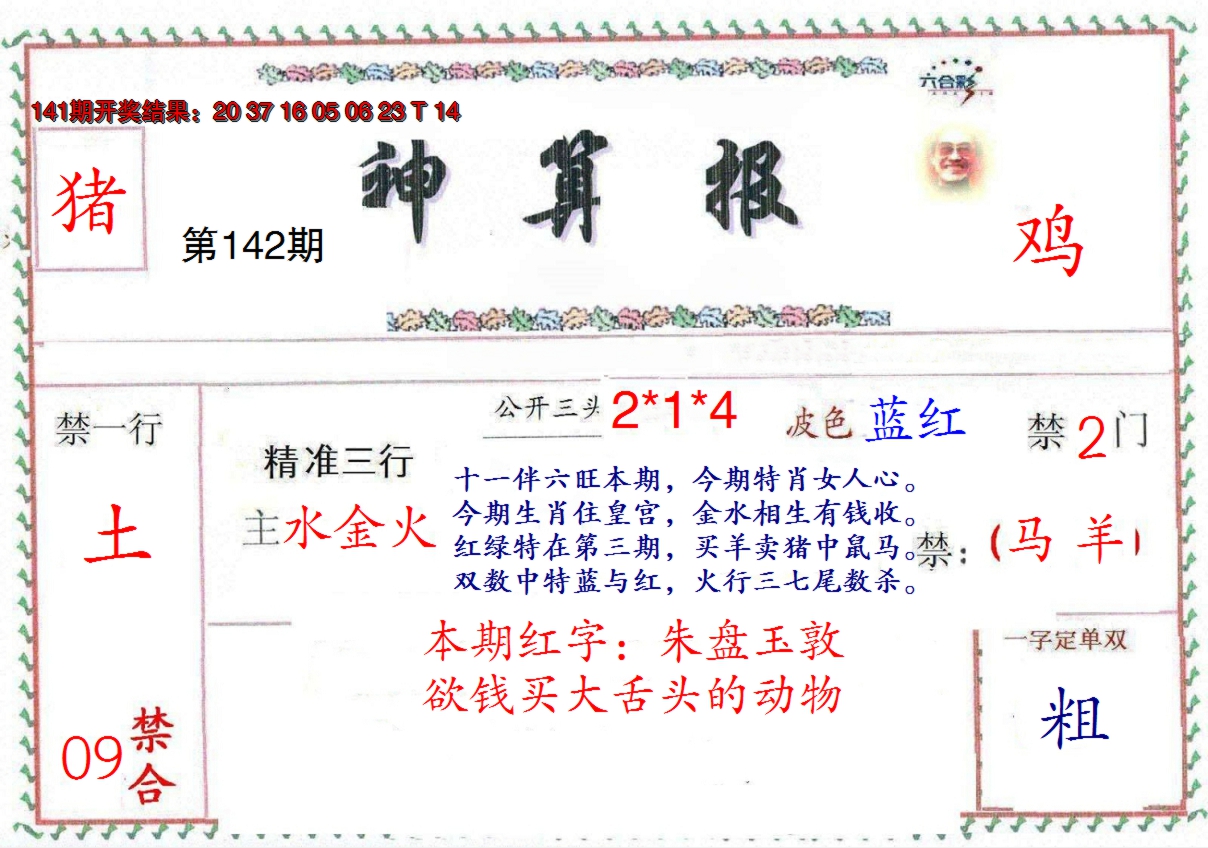 六合彩
141期开奖结果：20 37 16 05 06 23 T 14
神算报
猪
第142期
鸡
禁一行
土
09禁合
精准三行
主水金火
公开三头 2*1*4
波色 蓝红
禁2门
十一伴六旺本期，今期特肖女人心。
今期生肖住皇宫，金水相生有钱收。
红绿特在第三期，买羊卖猪中鼠马。
双数中特蓝与红，火行三七尾数杀。
禁：（马 羊）
本期红字：朱盘玉敦
欲钱买大舌头的动物
一字定单双
粗